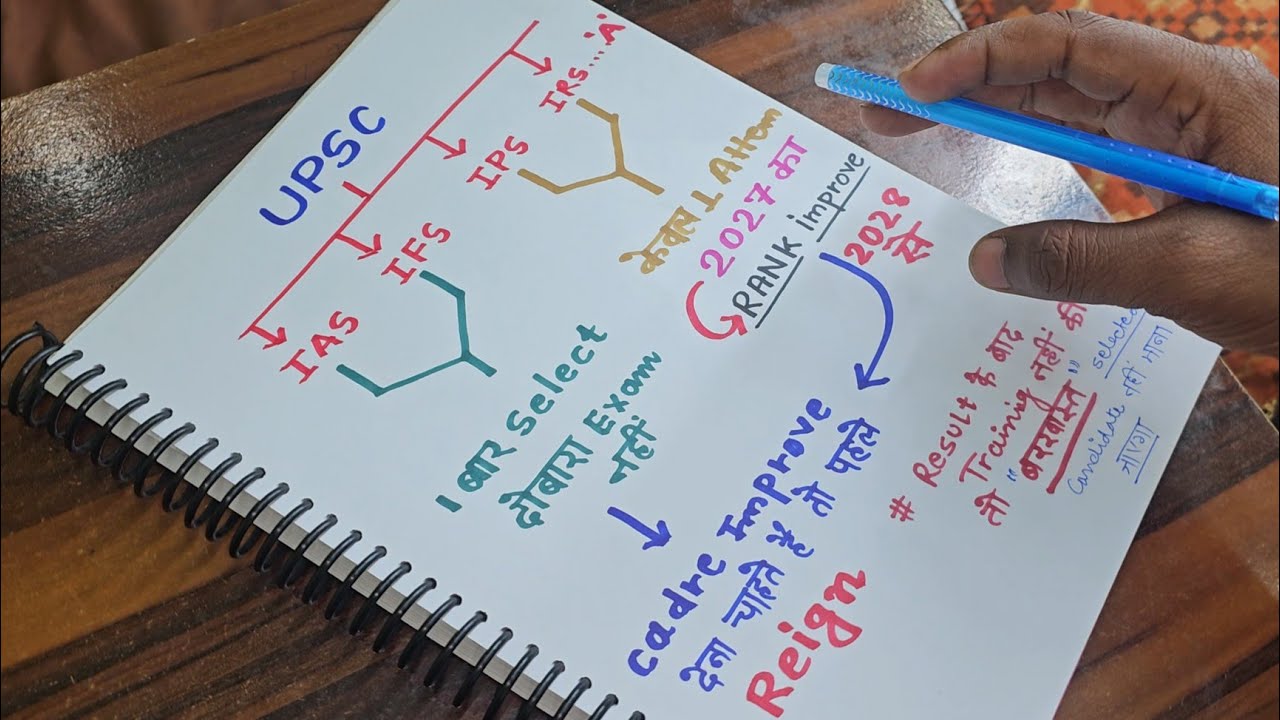 UPSC
IAS
IFS
IPS
IRS...'A'
1 बार Select
दोबारा Exam
नहीं
Cadre Improve
देना चाहते हैं तो पहले
Reign
केवल 1 Attem
2027 का
RANK improve
2028
से
# Result के बाद
Training नहीं की
तो "बरखास्त" selected
Candidate नहीं माना
जाएगा